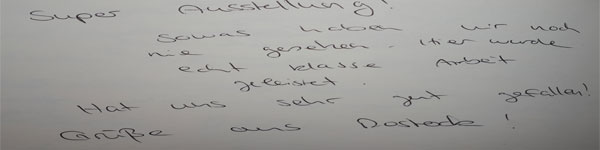 Super Ausstellung!
sowas haben wir noch
nie gesehen. Hier wurde
echt klasse Arbeit
geleistet.
Hat uns sehr gut gefallen!
Grüße aus Rostock!